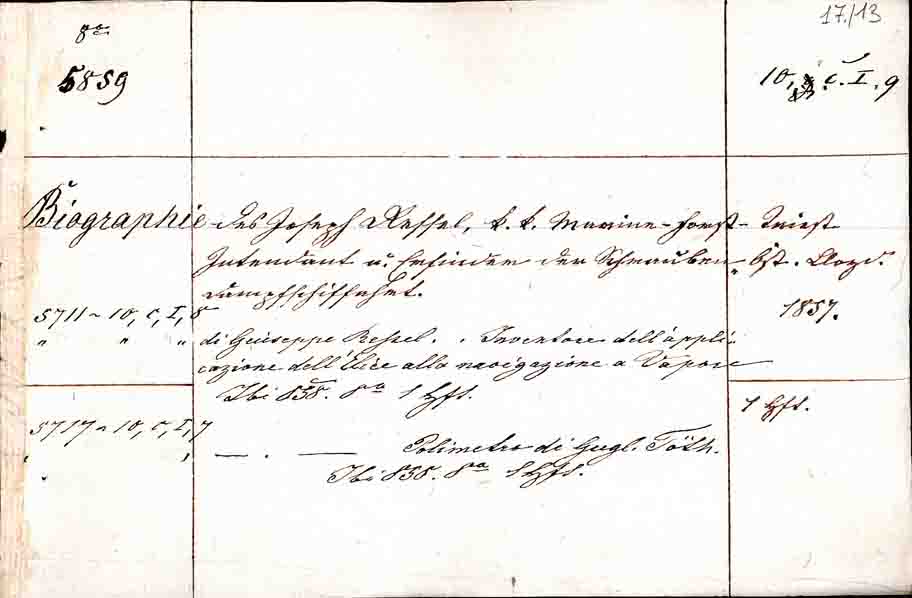 17./13
8°
5859
10, c. I, 9
Biographie des Joseph Ressel, k. k. Marine-Forst-
Intendant u. Erfinder der Schrauben-
dampfschiffahrt.
Triest
Öst. Lloyd.
1857.
5711 ~ 10, c, I, 8
" " " di Geiuseppe Ressel. . Inventore dell'appli-
cazione dell'Elice alla navigazione a Vapore
Ibi 858. 8° 1 Hft.
1 Hft.
5717 ~ 10, c, I, 7
— . — Polimetro di Gugl. Tóth.
Ibi 858. 8° 1 Hft.